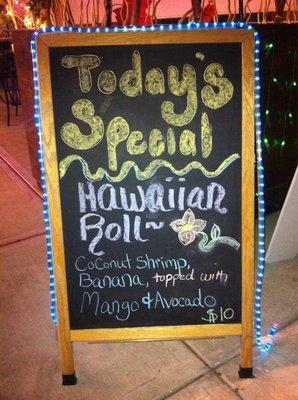 Today's
Special
Hawaiian
Roll~
Coconut Shrimp,
Banana, topped with
Mango & Avocado
$10